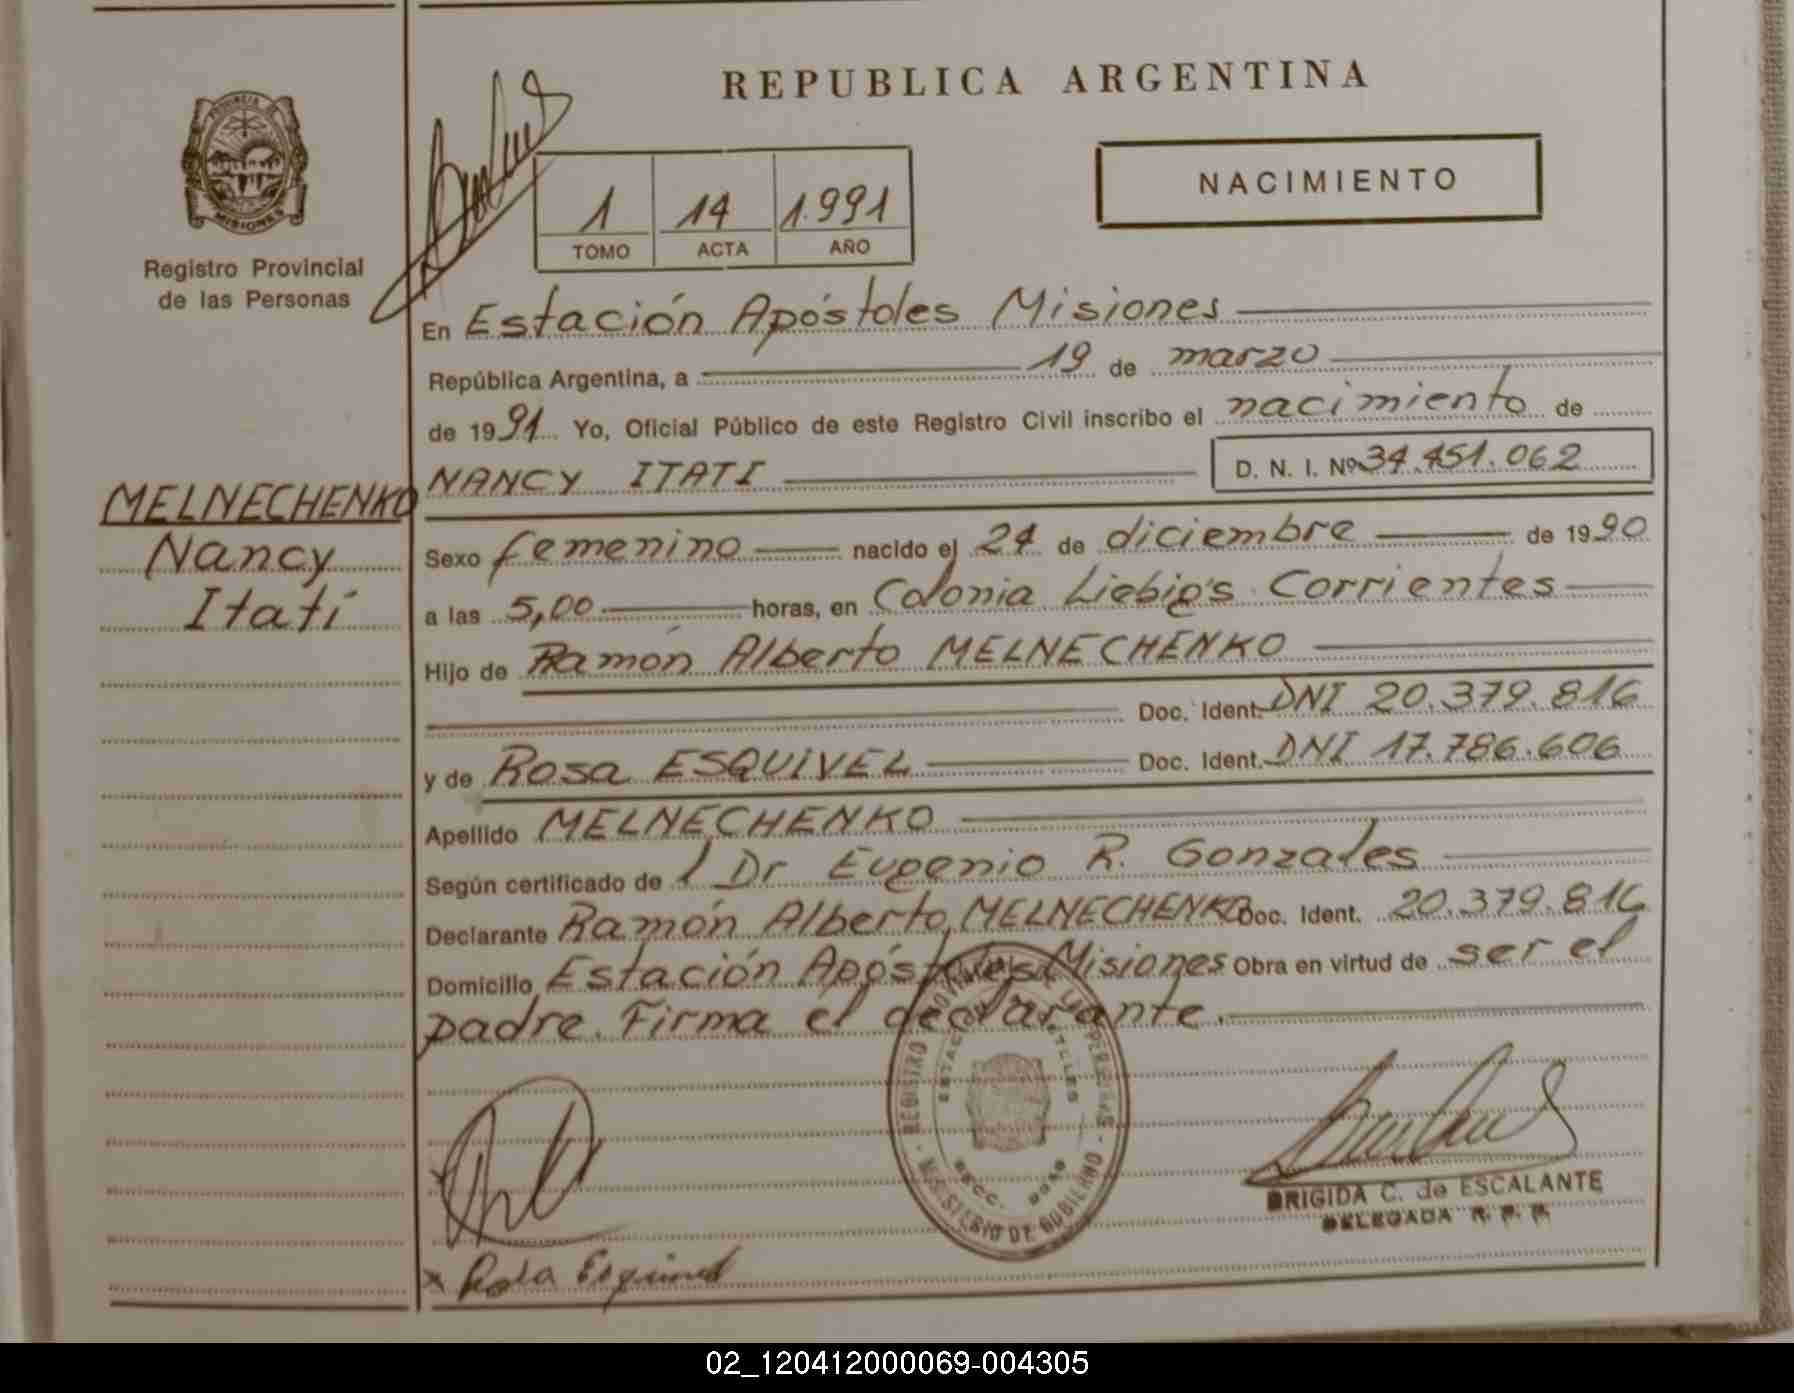 REPUBLICA ARGENTINA
PROVINCIA DE
MISIONES
Registro Provincial
de las Personas
NACIMIENTO
1 14 1.991
TOMO ACTA AÑO
En Estación Apóstoles Misiones
República Argentina, a 19 de marzo
de 1991 Yo, Oficial Público de este Registro Civil inscribo el nacimiento de
NANCY ITATI D. N. I. Nº 34.451.062
MELNECHENKO
Nancy
Itatí
Sexo femenino nacido el 24 de diciembre de 1990
a las 5,00 horas, en Colonia Liebig's Corrientes
Hijo de Ramón Alberto MELNECHENKO
Doc. Ident. DNI 20.379.816
y de Rosa ESQUIVEL Doc. Ident. DNI 17.786.606
Apellido MELNECHENKO
Según certificado de l Dr Eugenio R. Gonzales
Declarante Ramón Alberto MELNECHENKO Doc. Ident. 20.379.816
Domicilio Estación Apóstoles Misiones Obra en virtud de ser el
padre. Firma el declarante.
REGISTRO PROVINCIAL DE LAS PERSONAS - MINISTERIO DE GOBIERNO -
BRIGIDA C. de ESCALANTE
DELEGADA R. P. P.
x Rosa Esquivel
02_120412000069-004305